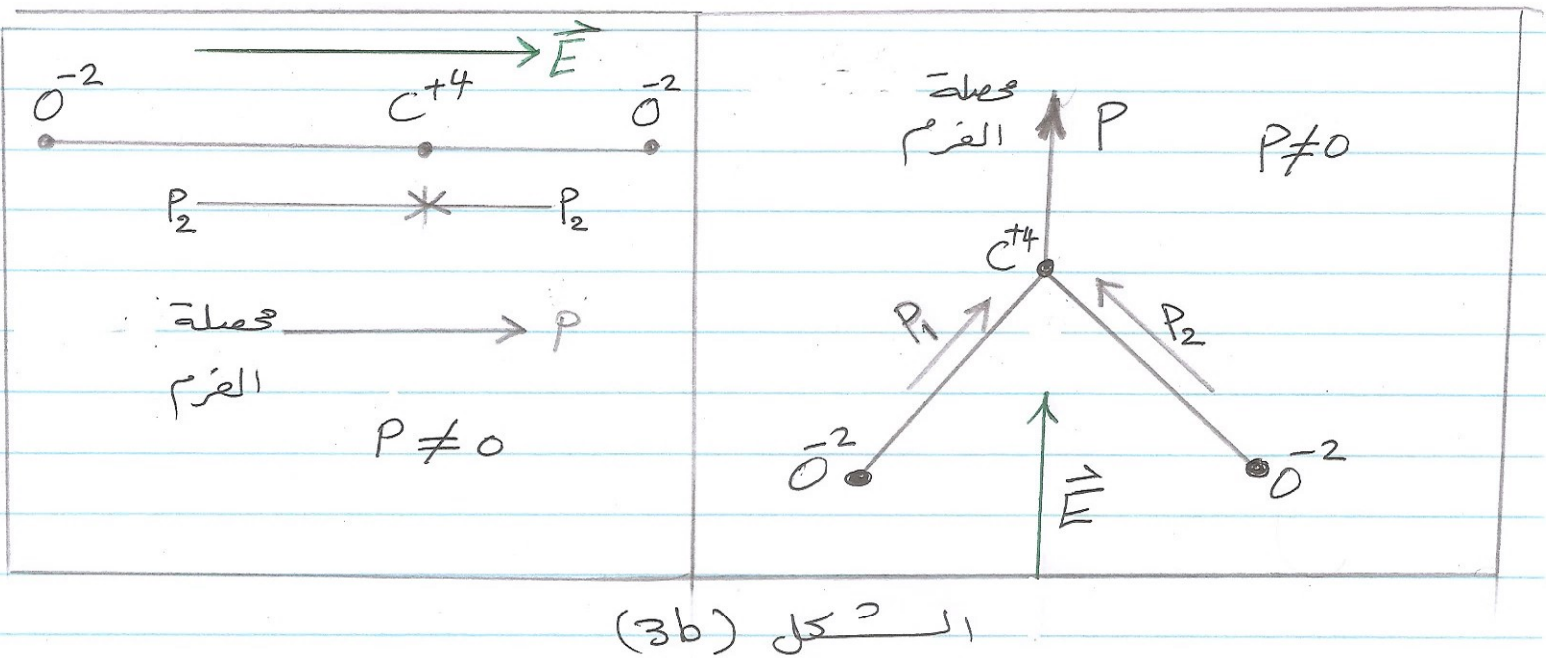 E
O⁻² C⁺⁴ O⁻²
P₂ P₂
محصلة P
العزم
P ≠ 0
محصلة
العزم
P
P ≠ 0
C⁺⁴
P₁ P₂
O⁻² O⁻²
E
الشكل (3b)